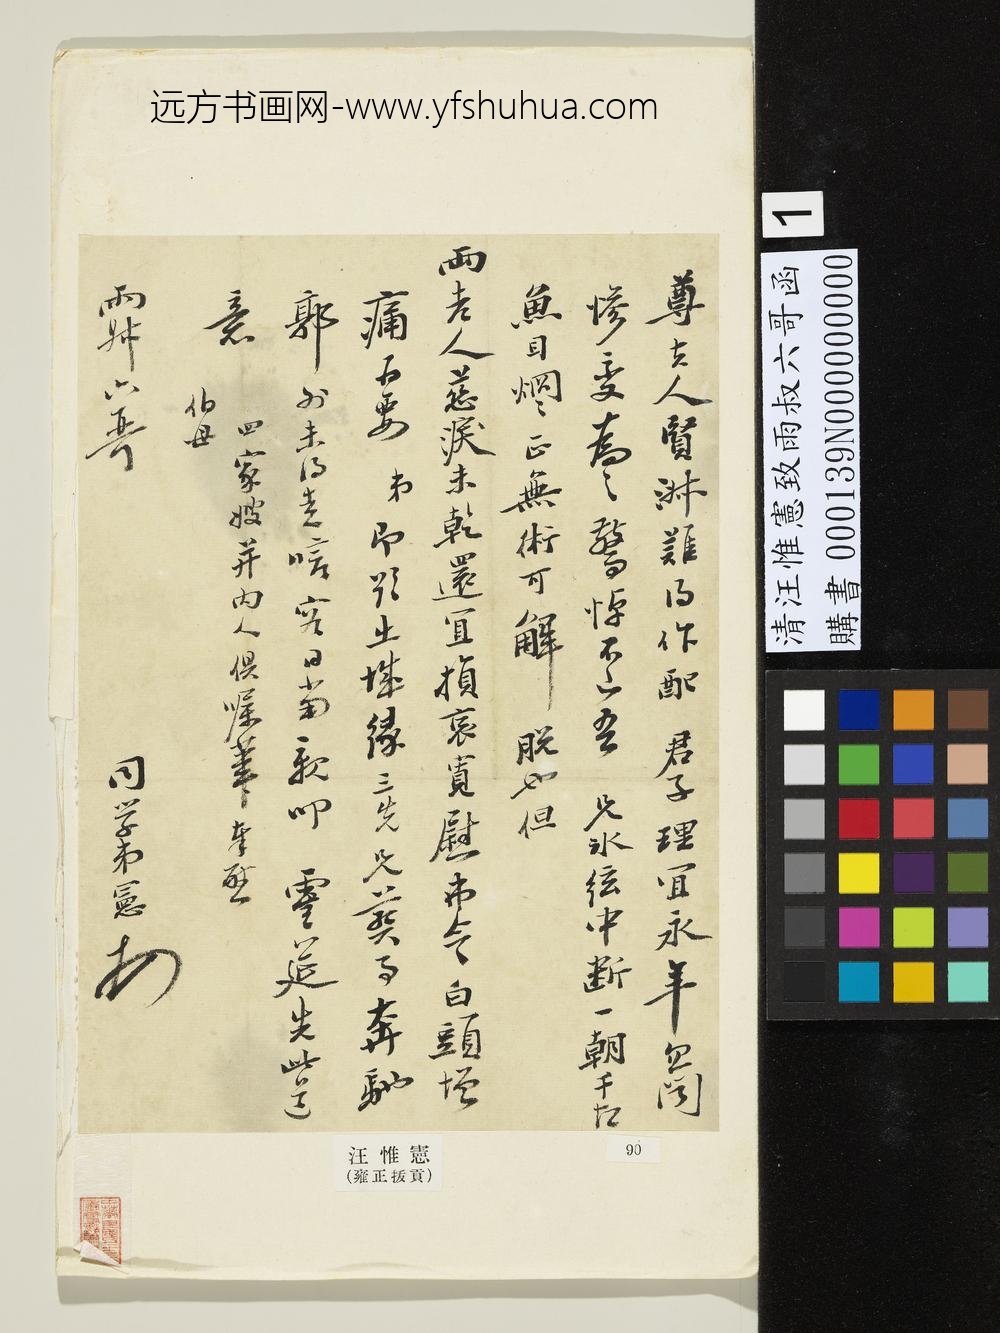 远方书画网-www.yfshuhua.com
尊夫人賢淋難得作配 君子理宜永年忽聞
慘變為之驚悼不已吾 兄冰絃中斷一朝千古
魚目烱烱正無術可解 脫也但
兩老人慈淚未乾還宜損哀寬慰弗令白頭增
痛為要 弟即欲出城緣三先兄葬事奔馳
郭外未得走唁容日當親叩 靈筵先此道
意
四家嫂并內人俱囑筆奉慰
伯母
雨叔六哥
同學弟憲
汪惟憲
(雍正拔貢)
90
1
清汪惟憲致雨叔六哥函
購書 000139N000000000